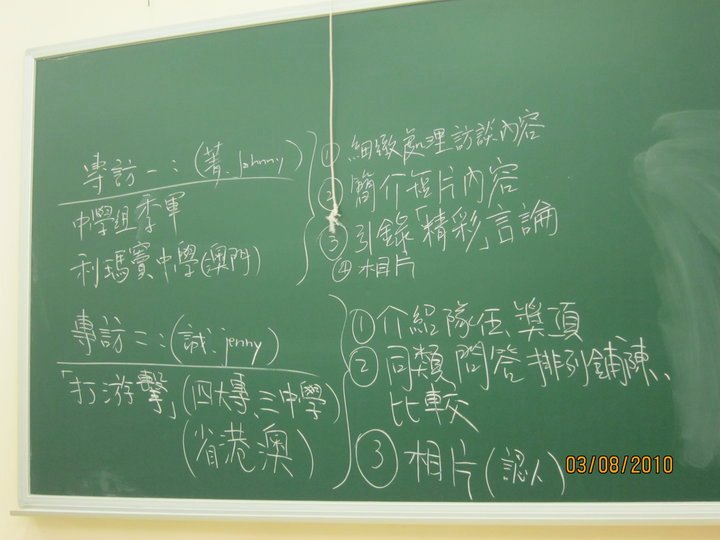 專訪一：(菁、Johnny)
中學組季軍
利瑪竇中學(澳門)
①細緻處理訪談內容
②簡介短片內容
③引錄「精彩」言論
④相片
專訪二：(誠、jenny)
「打游擊」(四大專、三中學)
(省港澳)
①介紹隊伍、獎項
②同類問答排列鋪陳、
比較
③相片(認人)
03/08/2010